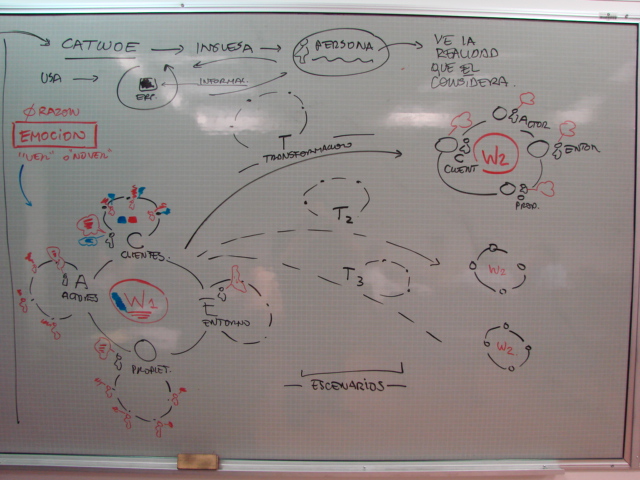 CATWOE → INGLESA → PERSONA → VE LA
REALIDAD
QUE EL
CONSIDERA.
USA → ERP. INFORMAL.
Ø RAZON
EMOCION
"VER" O "NO VER"
T
TRANSFORMACION
ACTOR
W2
C
CLIENT
ENTOR
PROP.
T2
C
CLIENTES.
A
ACTORES
W1
E
ENTORNO
T3
W2
W2
PROPIET.
ESCENARIOS